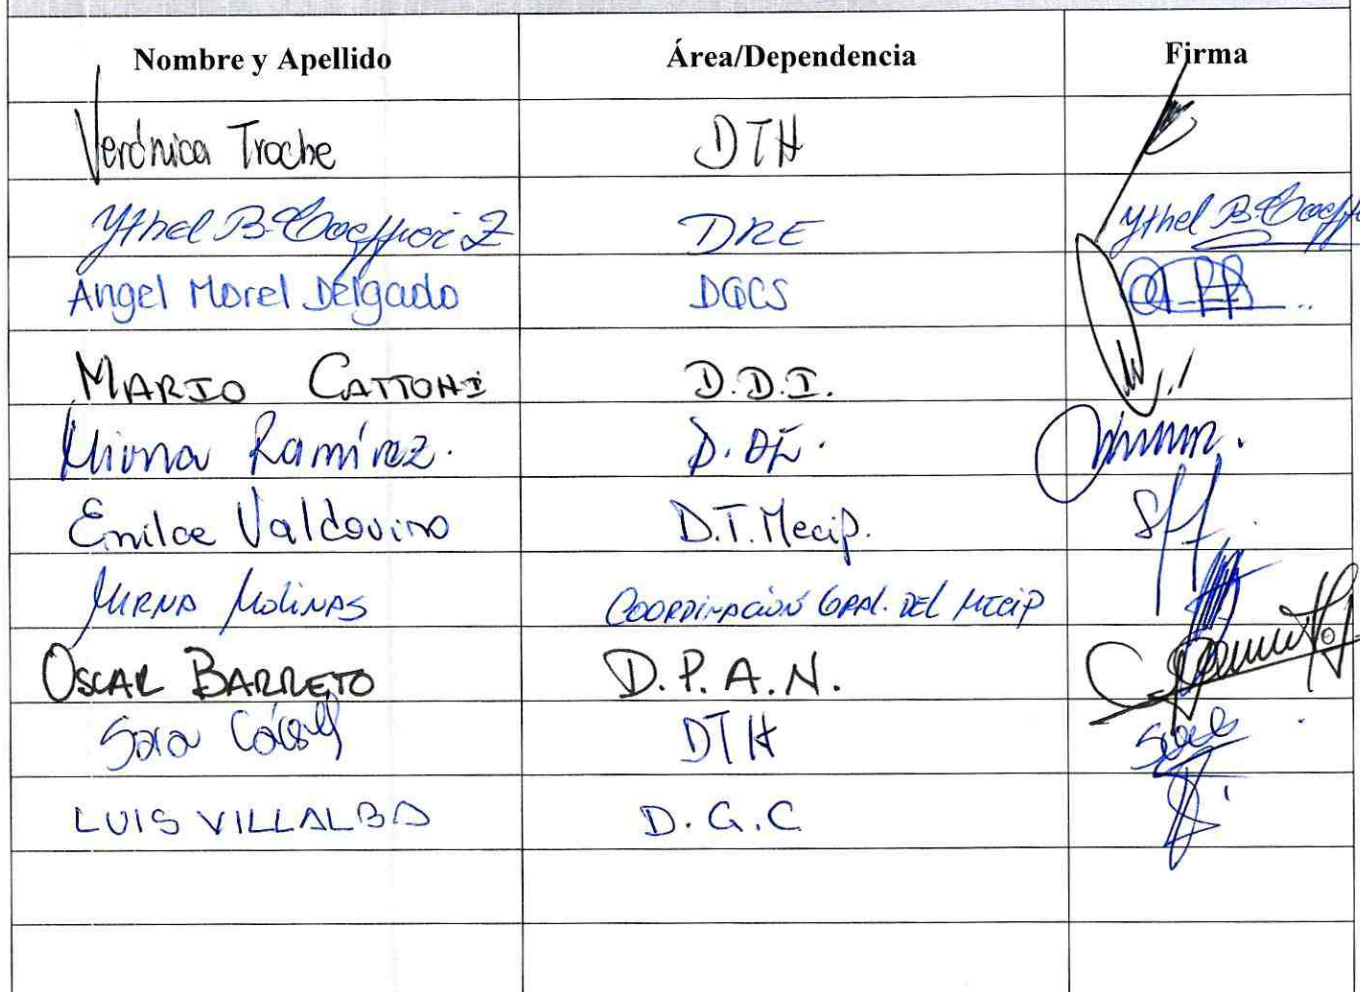 Nombre y Apellido Área/Dependencia Firma
Verónica Troche DTH
Ythel B. Z DRE Ythel B.
Angel Morel Delgado DGCS
MARIO CATTONI D.D.I.
Ramírez. D.
Emilce Valdovino D.T.Mecip.
MIRNA MOLINAS COORDINACIÓN GRAL. DEL MECIP
OSCAR BARRETO D.P.A.N.
Sara DTH
LUIS VILLALBA D.G.C